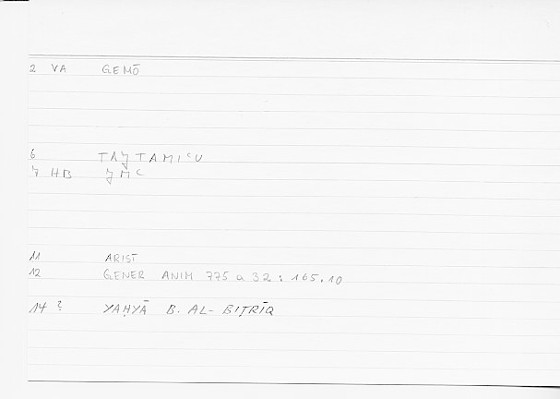 2 VA GEMŌ
6 TAǦTAMIʿU
7 HB ǦMʿ
11 ARIST
12 GENER ANIM 775 a 32 : 165.10
14 ? YAḤYĀ B. AL-BIṬRĪQ